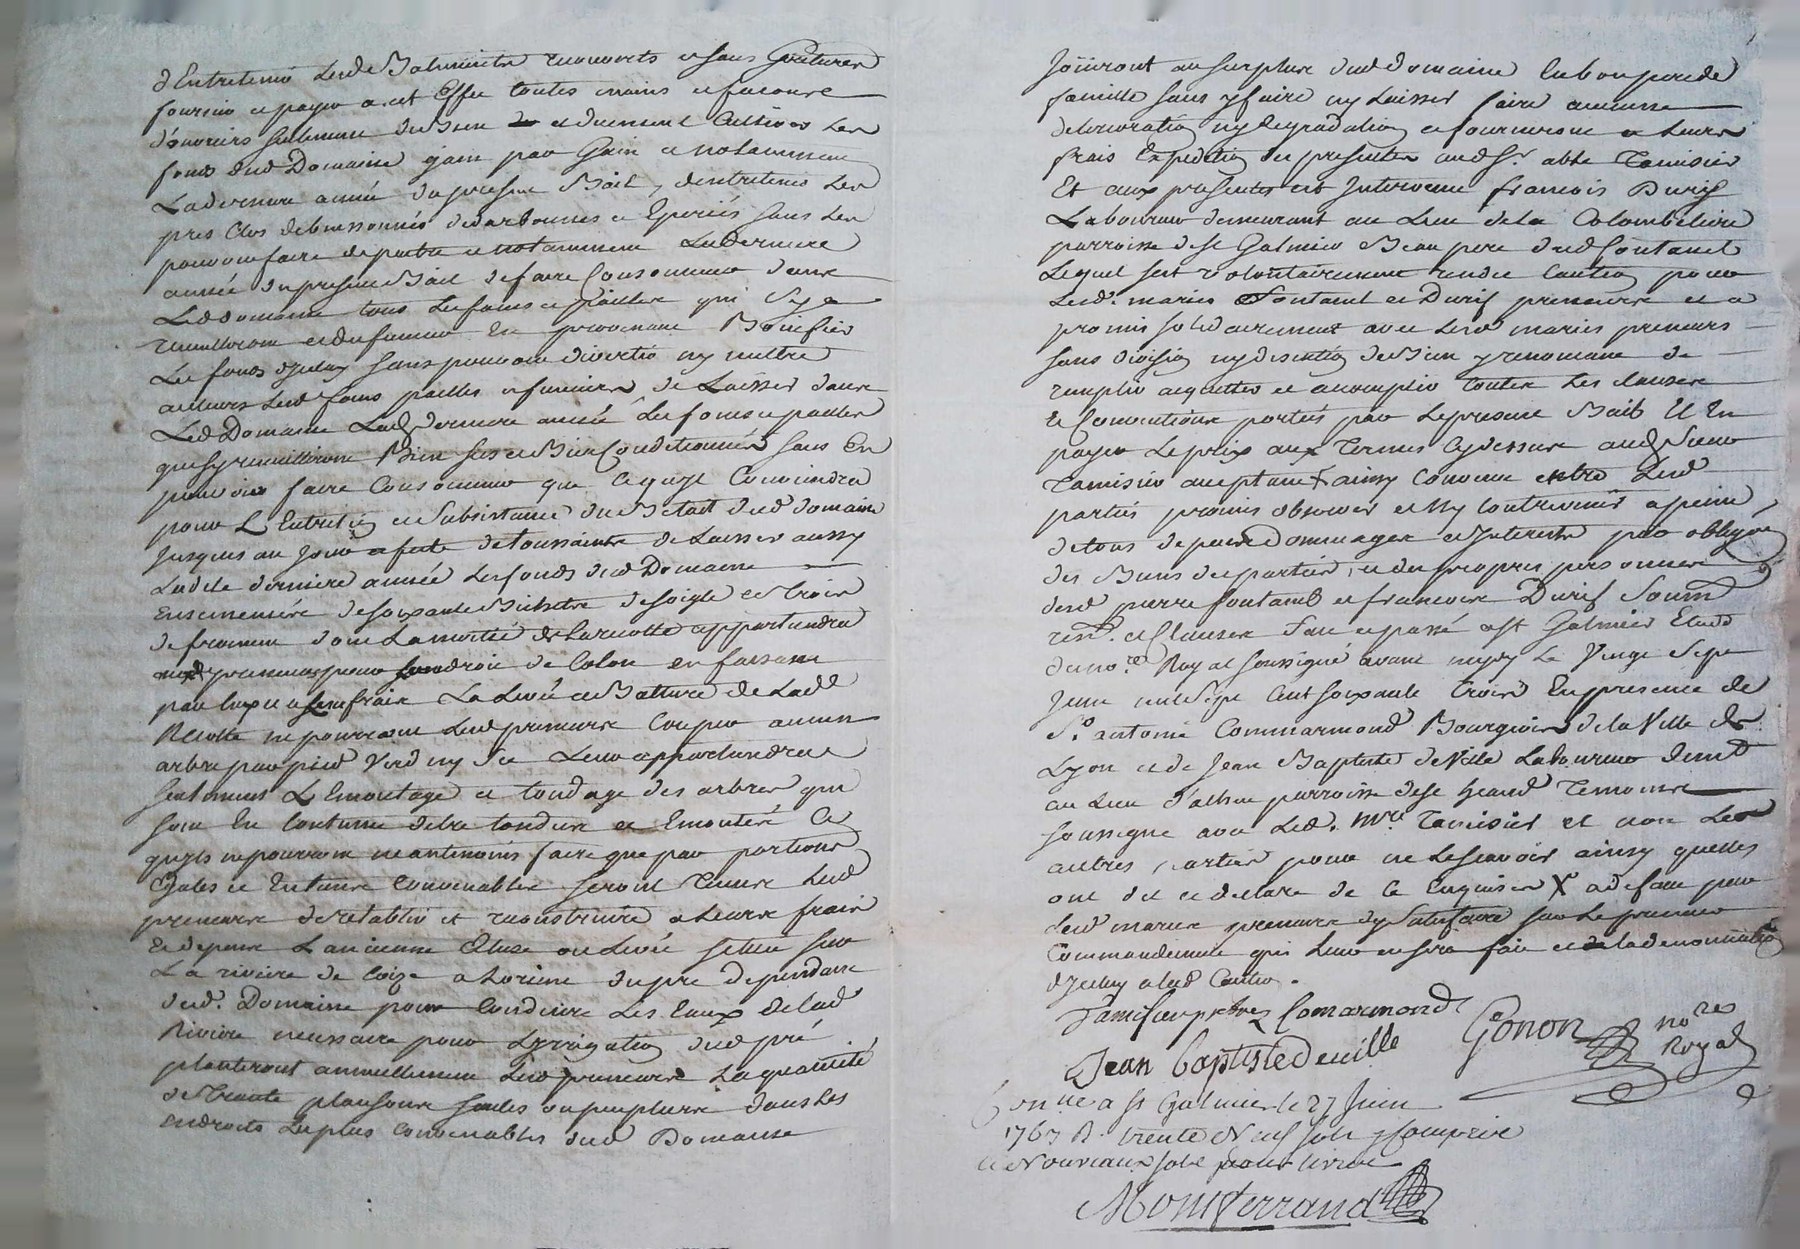 d'Entretenir lesd. Batiments recouverts et sans Goutieres
fournir et payer a cet Effet toutes mains et facons
d'ouvriers Galmier de bien et duement Cultiver les
fonds dud Domaine gain par Gain et notamment
La derniere année du present Bail, d'entretenir les
prés Clos debuissonnés derarbonnés et Epieriés sans les
pouvoir faire depaitre et notamment la derniere
année du present Bail de faire Consommer dans
Led domaine tous les foins et pailles qui s'y
recuilleront et du fumier en provenant Bonifier
Les fonds d'Jceluy sans pouvoir divertir ny mettre
ailleurs lesd foins pailles et fumiers de Laisser dans
Led Domaine Lad derniere année les foins et pailles
qui s'y recuilliront Bien secs et Bien Conditionnés sans En
pouvoir faire Consommer que ce qu'il Conviendra
pour L'Entretien et Subsistance du Betail dud domaine
jusques au jour et fete de toussaints de Laisser aussy
Ladite derniere année les fonds dud Domaine
Ensemencés de soixante Bichets de soigle et trois
de froment dont La moitié de la recolte appartiendra
auxd preneurs pour leur droit de Colon en faisant
par eux et a leurs frais La Levée et Batture de Lad
Recolte ne pourront Lesd preneurs Couper aucun
arbre par pied Verd ny Sec Leur appartiendra
seulement L'Emontage et tondage des arbres qui
sont En Coutume d'etre tondus et Emontés Ce
qu'ils ne pourront neantmoins faire que par portions
Egales et En tems convenables seront Tenus lesd
preneurs de retablir et reconstruire a Leurs frais
et depens L'ancienne Ecluse ou Levée scituée sur
La riviere de Coize a Lorient du pré dependant
dud. Domaine pour Conduire Les Eaux de lad
Riviere necessaire pour L'jrrigation dud pré
planteront annuellement lesd preneurs La quantité
de trente plansons saules ou peupliers dans les
endroits les plus convenables dud Domaine
Joüiront au surplus dud domaine En bon pere de
famille sans y faire ny Laisser faire aucune
deterioration ny degradation et fourniront a Leurs
frais Expedition des presentes aud Sr. abbé Tamisier
Et aux presentes est Intervenu francois Durif
Laboureur demeurant au Lieu de la Colombetiere
parroisse de St Galmier Beau pere dud fontanel
Lequel s'est volontairement rendu Caution pour
Lesd. mariés Fontanel et Durif preneurs et a
promis solidairement avec Lesd mariés preneurs
sans division ny discution de Bien y renoncant de
remplir acquitter et accomplir toutes les clauses
Et Conventions portées par Le present Bail Et En
payer Le prix aux Termes Cydessus aud Sieur
Tamisier acceptant + ainsy Convenu entre Lesd
parties promis observer et N'y Contrevenir a peine
de tous depens dommages et Interests par obligation
des Biens des parties, et des propres personnes
desd pierre fontanel et francois Durif Soum.
ren. et Clauses fait et passé a St Galmier Etude
du no.re Royal soussigné avant midy Le Vingt Sept
Juin mil Sept Cent soixante trois En presence de
Sr. antoine Commarmond Bourgeois de la Ville de
Lyon et de Jean Baptiste deVille Laboureur demt
au Lieu d'albin parroisse de St heand Temoins
soussigné avec Led. Mre Tamisier et non Les
autres parties pour ne le scavoir ainsy quelles
ont dit et declaré de Ce Enquises X a defaut par
lesd mariés preneurs d'y Satisfaire sur Le premier
Commandement qui Leur en sera fait et de la denonciation
d'Jceluy alad Caution.
Tamisier prêtre Comarmond
Jean Baptiste deville Gonon nore Royal
Conlle a St Galmier le 27 Juin
1763 R. trente Neuf sols y Compris
les Nouveaux sols pour livre
Montferrand